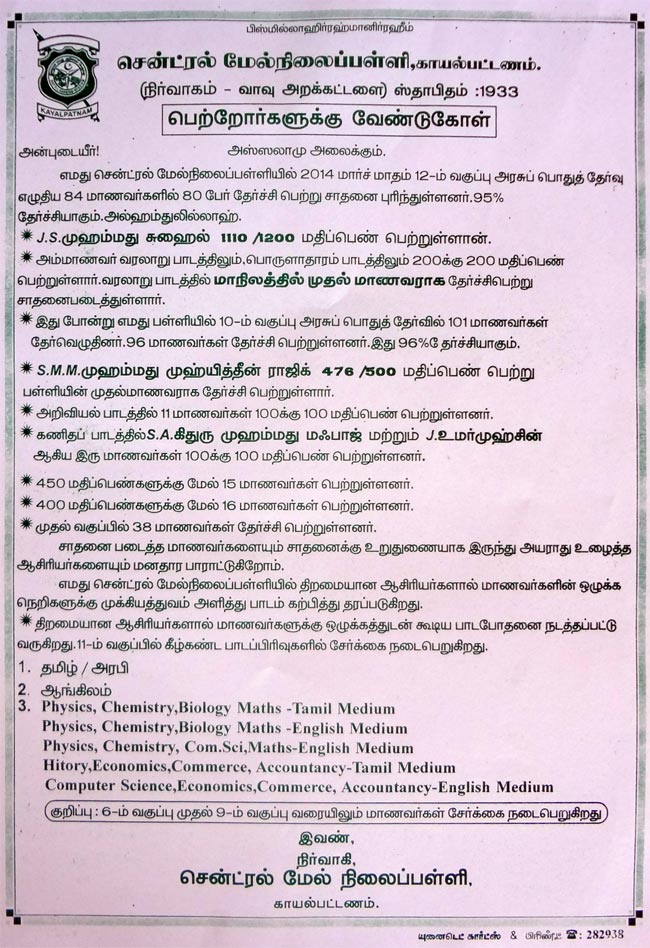 பிஸ்மில்லாஹிர்ரஹ்மானிர்ரஹீம்
சென்ட்ரல் மேல்நிலைப்பள்ளி,காயல்பட்டணம்.
KAYALPATNAM
(நிர்வாகம் - வாவு அறக்கட்டளை) ஸ்தாபிதம் :1933
பெற்றோர்களுக்கு வேண்டுகோள்
அன்புடையீர்! அஸ்ஸலாமு அலைக்கும்.
எமது சென்ட்ரல் மேல்நிலைப்பள்ளியில் 2014 மார்ச் மாதம் 12-ம் வகுப்பு அரசுப் பொதுத் தேர்வு
எழுதிய 84 மாணவர்களில் 80 பேர் தேர்ச்சி பெற்று சாதனை புரிந்துள்ளனர்.95%
தேர்ச்சியாகும்.அல்ஹம்துலில்லாஹ்.
✷ J.S.முஹம்மது சுஹைல் 1110 /1200 மதிப்பெண் பெற்றுள்ளான்.
✷ அம்மாணவர் வரலாறு பாடத்திலும்,பொருளாதாரம் பாடத்திலும் 200க்கு 200 மதிப்பெண்
பெற்றுள்ளார்.வரலாறு பாடத்தில் மாநிலத்தில் முதல் மாணவராக தேர்ச்சிபெற்று
சாதனைபடைத்துள்ளார்.
✷ இது போன்று எமது பள்ளியில் 10-ம் வகுப்பு அரசுப் பொதுத் தேர்வில் 101 மாணவர்கள்
தேர்வெழுதினர்.96 மாணவர்கள் தேர்ச்சி பெற்றுள்ளனர்.இது 96%தேர்ச்சியாகும்.
✷ S.M.M.முஹம்மது முஹ்யித்தீன் ராஜிக் 476 /500 மதிப்பெண் பெற்று
பள்ளியின் முதல்மாணவராக தேர்ச்சி பெற்றுள்ளார்.
✷ அறிவியல் பாடத்தில் 11 மாணவர்கள் 100க்கு 100 மதிப்பெண் பெற்றுள்ளனர்.
✷ கணிதப் பாடத்தில்S.A.கிதுரு முஹம்மது மஃபாஜ் மற்றும் J.உமர்முஹ்சின்
ஆகிய இரு மாணவர்கள் 100க்கு 100 மதிப்பெண் பெற்றுள்ளனர்.
✷ 450 மதிப்பெண்களுக்கு மேல் 15 மாணவர்கள் பெற்றுள்ளனர்.
✷ 400 மதிப்பெண்களுக்கு மேல் 16 மாணவர்கள் பெற்றுள்ளனர்.
✷ முதல் வகுப்பில் 38 மாணவர்கள் தேர்ச்சி பெற்றுள்ளனர்.
சாதனை படைத்த மாணவர்களையும் சாதனைக்கு உறுதுணையாக இருந்து அயராது உழைத்த
ஆசிரியர்களையும் மனதார பாராட்டுகிறோம்.
எமது சென்ட்ரல் மேல்நிலைப்பள்ளியில் திறமையான ஆசிரியர்களால் மாணவர்களின் ஒழுக்க
நெறிகளுக்கு முக்கியத்துவம் அளித்து பாடம் கற்பித்து தரப்படுகிறது.
✷ திறமையான ஆசிரியர்களால் மாணவர்களுக்கு ஒழுக்கத்துடன் கூடிய பாடபோதனை நடத்தப்பட்டு
வருகிறது.11-ம் வகுப்பில் கீழ்கண்ட பாடப்பிரிவுகளில் சேர்க்கை நடைபெறுகிறது.
1. தமிழ் / அரபி
2. ஆங்கிலம்
3. Physics, Chemistry,Biology Maths -Tamil Medium
Physics, Chemistry,Biology Maths -English Medium
Physics, Chemistry, Com.Sci,Maths-English Medium
Hitory,Economics,Commerce, Accountancy-Tamil Medium
Computer Science,Economics,Commerce, Accountancy-English Medium
குறிப்பு : 6-ம் வகுப்பு முதல் 9-ம் வகுப்பு வரையிலும் மாணவர்கள் சேர்க்கை நடைபெறுகிறது
இவண்,
நிர்வாகி,
சென்ட்ரல் மேல் நிலைப்பள்ளி,
காயல்பட்டணம்.
யுனைடெட் கார்ட்ஸ் & பிரிண்ட் ☎: 282938